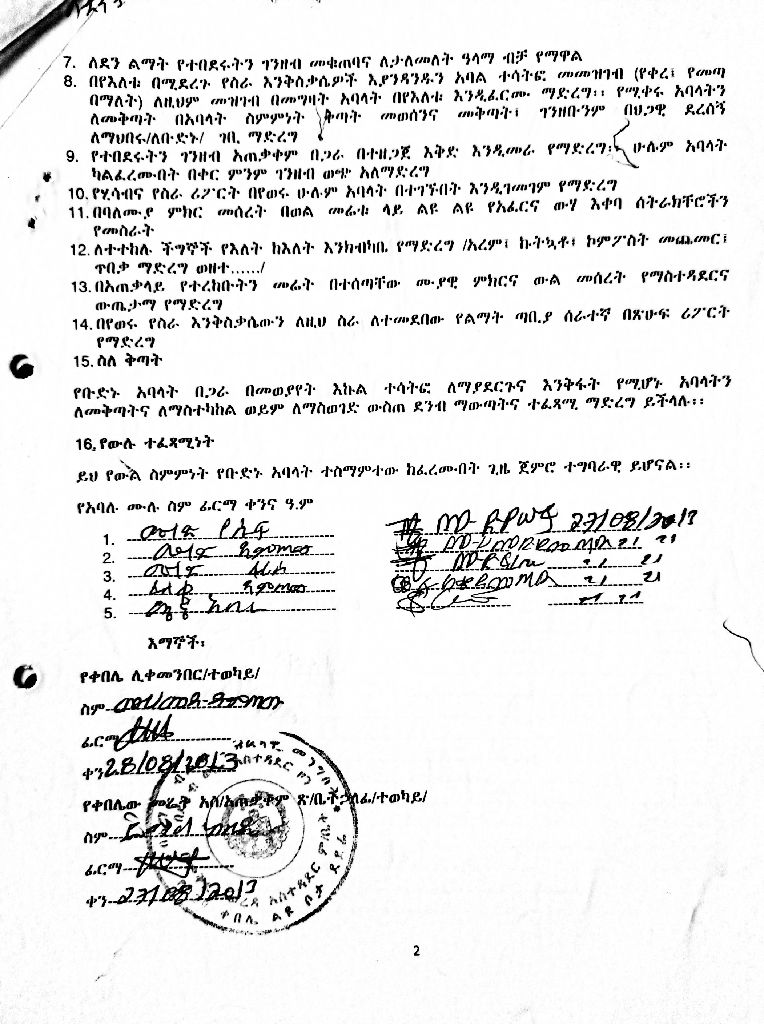 7. ለደን ልማት የተበደሩትን ገንዘብ መቁጠባና ለታለመለት ዓላማ ብቻ የማዋል
8. በየእለቱ በሚደረጉ የስራ እንቅስቃሴዎች እያንዳንዱን አባል ተሳትፎ መመዝገብ (የቀረ፣ የመጣ
በማለት) ለዚህም መዝገብ በመግባት አባላት በየእለቱ እንዲፈርሙ ማድረግ፡፡ የሚቀሩ አባላትን
ለመቅጣት በአባላት ስምምነት ቅጣት መወሰንና መቅጣት፣ ገንዘቡንም በህጋዊ ደረሰኝ
ለማህበሩ/ለቡድኑ/ ገቢ ማድረግ
9. የተበደሩትን ገንዘብ አጠቃቀም በጋራ በተዘጋጀ እቅድ እንዲመራ የማድረግ፡፡ ሁሉም አባላት
ካልፈረሙበት በቀር ምንም ገንዘብ ወጭ አለማድረግ
10. የሂሳብና የስራ ሪፖርት በየወሩ ሁሉም አባላት በተገኙበት እንዲገመገም የማድረግ
11. በባለሙያ ምክር መሰረት በወል መሬቱ ላይ ልዩ ልዩ የአፈርና ውሃ እቀባ ስትራክቸሮችን
የመስራት
12. ለተተከሉ ችግኞች የእለት ከእለት እንክብካቤ የማድረግ /አረም፣ ኩትኳቶ፣ ኮምፖስት መጨመር፣
ጥበቃ ማድረግ ወዘተ....../
13. በአጠቃላይ የተረከቡትን መሬት በተሰጣቸው ሙያዊ ምክርና ውል መሰረት የማስተዳደርና
ውጤታማ የማድረግ
14. በየወሩ የስራ እንቅስቃሴውን ለዚህ ስራ ለተመደበው የልማት ጣቢያ ሰራተኛ በጽሁፍ ሪፖርት
የማድረግ
15. ስለ ቅጣት
የቡድኑ አባላት በጋራ በመወያየት እኩል ተሳትፎ ለማያደርጉና እንቅፋት የሚሆኑ አባላትን
ለመቅጣትና ለማስተካከል ወይም ለማስወገድ ውስጠ ደንብ ማውጣትና ተፈጻሚ ማድረግ ይችላሉ፡፡
16. የውሉ ተፈጻሚነት
ይህ የውል ስምምነት የቡድኑ አባላት ተስማምተው ከፈረሙበት ጊዜ ጀምሮ ተግባራዊ ይሆናል፡፡
የአባሉ ሙሉ ስም ፊርማ ቀንና ዓ.ም
1. 23/08/2013
2. 21 21
3. 21 21
4. 21 21
5. 21 21
እማኞች፡
የቀበሌ ሊቀመንበር/ተወካይ/
ስም
ፊርማ
ቀን 28/08/2013
የቀበሌው መሬት አስ/አጠቃቀም ጽ/ቤት ኃላፊ/ተወካይ/
ስም
ፊርማ
ቀን 23/08/2013
2